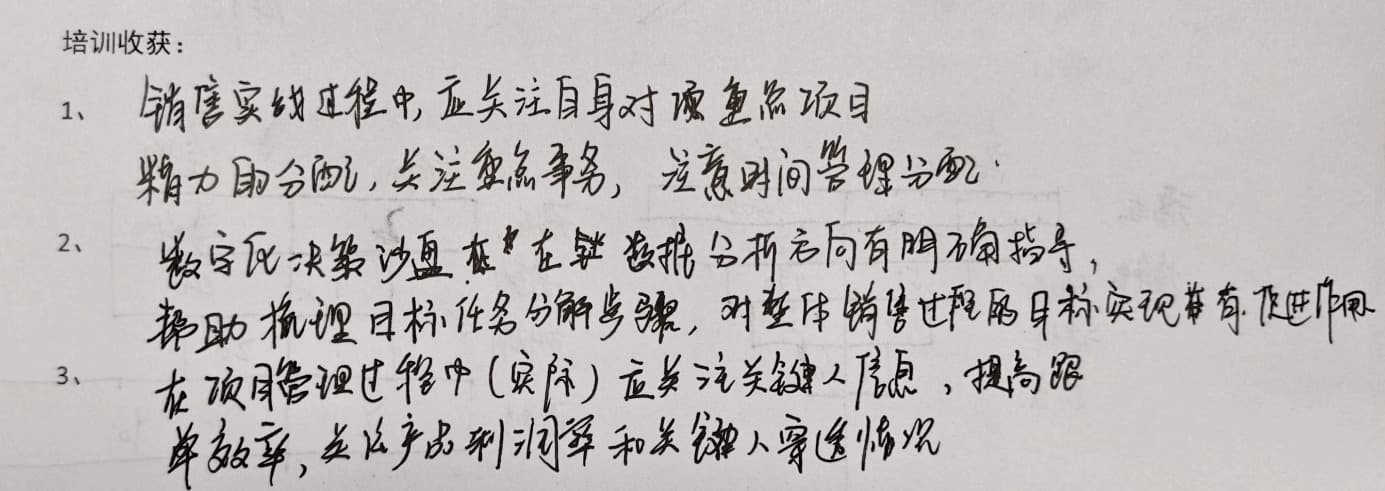 培训收获：
1、 销售实战过程中，应关注自身对重点项目
精力的分配，关注重点事务，注意时间管理分配.
2、 数字化决策沙盘在数据分析方向有明确指导，
帮助梳理目标任务分解步骤，对整体销售过程的目标实现有促进作用
3、 在项目管理过程中（实际）应关注关键人信息，提高跟
单效率，关注产品利润率和关键人穿透情况